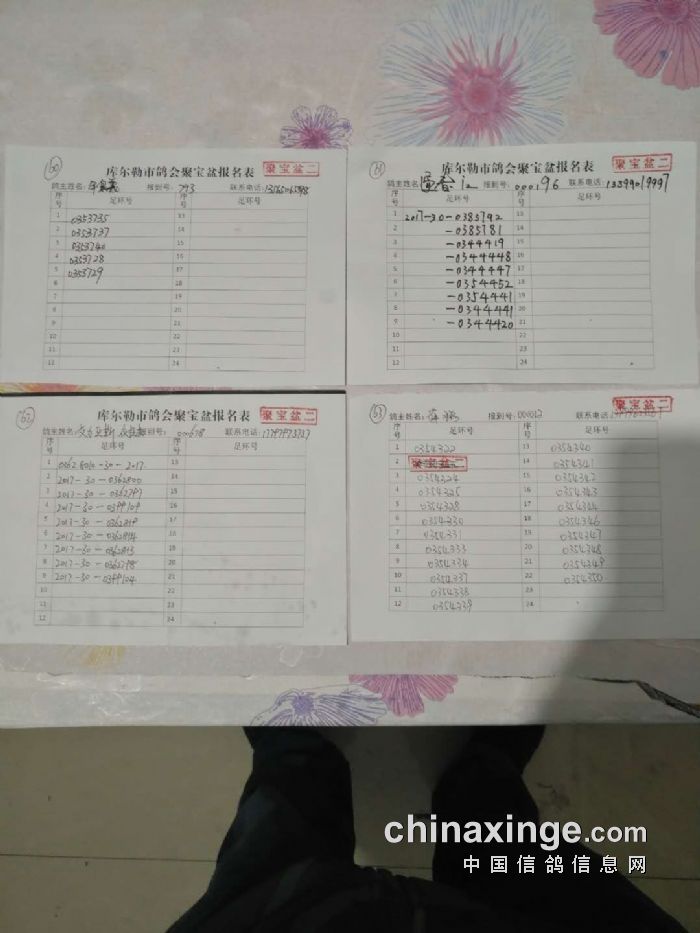 60
库尔勒市鸽会聚宝盆报名表
聚宝盆二
鸽主姓名: 报到号: 793 联系电话:
序号 足环号 序号 足环号
1 0353735 13
2 0353737 14
3 0353740 15
4 0353728 16
5 0353729 17
6 18
7 19
8 20
9 21
10 22
11 23
12 24
61
库尔勒市鸽会聚宝盆报名表
聚宝盆二
鸽主姓名: 报到号: 000196 联系电话: 13399019997
序号 足环号 序号 足环号
1 2017-30-0385792 13
2 -0385781 14
3 -0344419 15
4 -0344448 16
5 -0344447 17
6 -0354452 18
7 -0354441 19
8 -0344441 20
9 -0344420 21
10 22
11 23
12 24
62
库尔勒市鸽会聚宝盆报名表
聚宝盆二
鸽主姓名: 报到号: 联系电话:
序号 足环号 序号 足环号
1 13
2 2017-30-0362800 14
3 2017-30-0362797 15
4 2017-30-0399109 16
5 2017-30-0362819 17
6 2017-30-0362814 18
7 2017-30-0362813 19
8 2017-30-0362798 20
9 2017-30-0399104 21
10 22
11 23
12 24
63
聚宝盆二
鸽主姓名: 报到号: 000012 联系电话:
序号 足环号 序号 足环号
1 0354322 13 0354340
2 聚宝盆二 14 0354341
3 0354324 15 0354342
4 0354325 16 0354343
5 0354328 17 0354344
6 0354330 18 0354346
7 0354331 19 0354347
8 0354333 20 0354348
9 0354334 21 0354349
10 0354337 22 0354350
11 0354338 23
12 0354339 24
chinaxinge.com
中国信鸽信息网